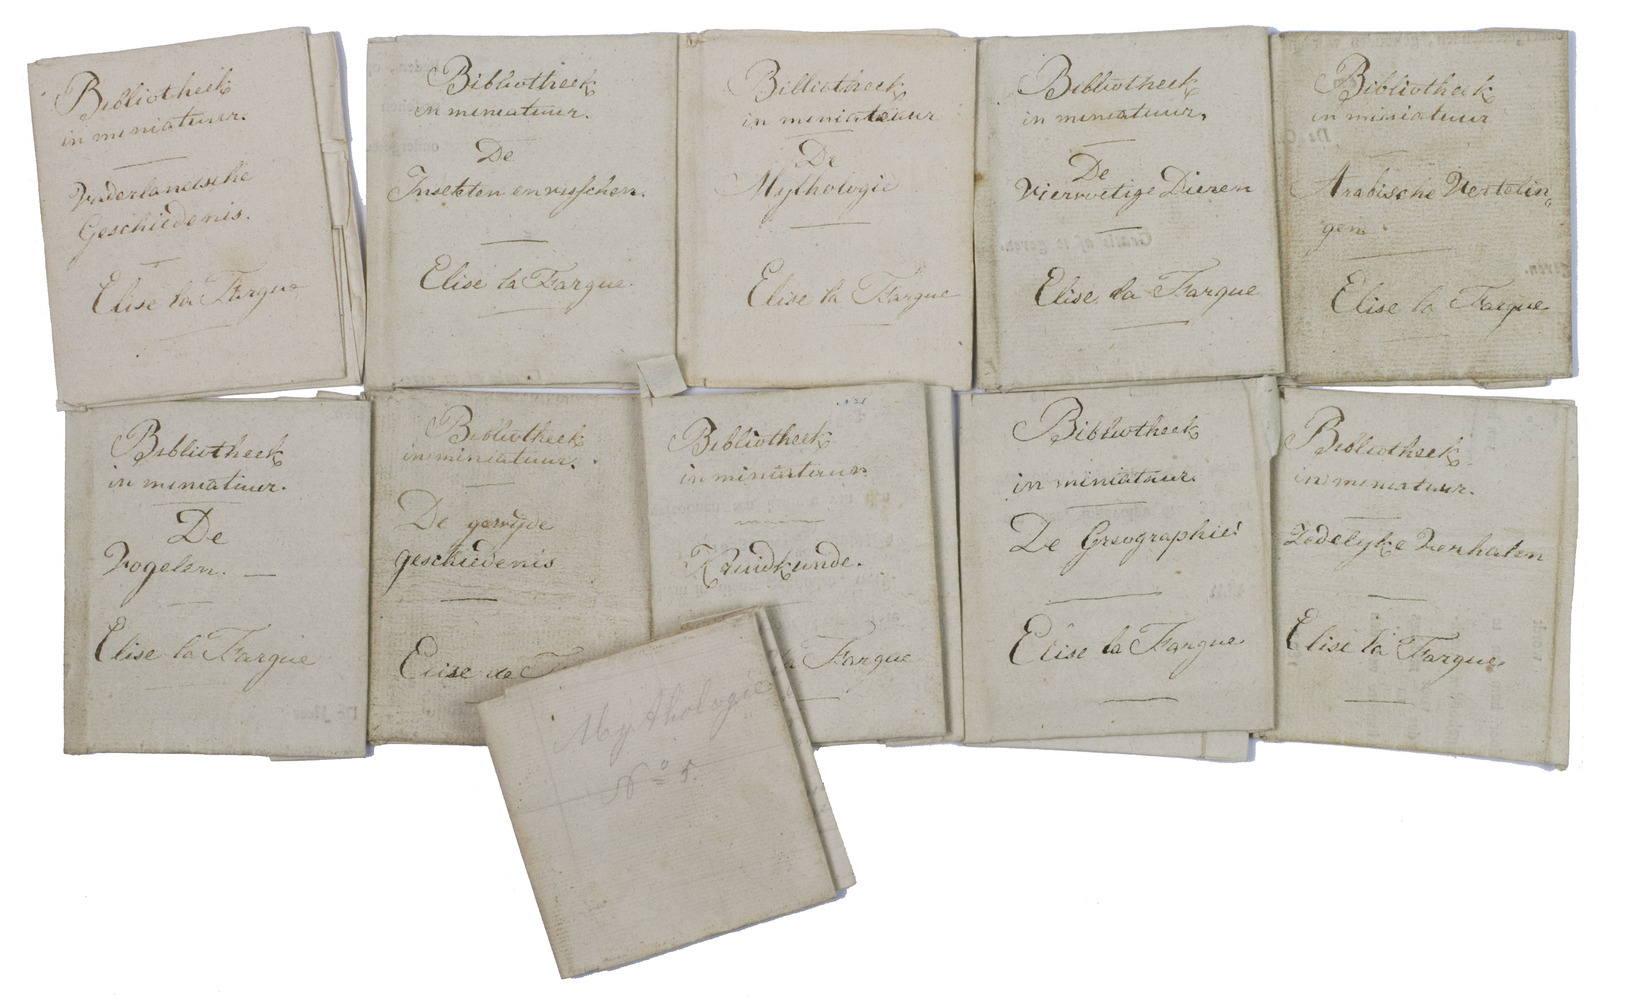 Bibliotheek
in miniatuur.
Vaderlandsche
Geschiedenis.
Elise la Fargue
Bibliotheek
in miniatuur.
De
Insekten en visschen.
Elise la Fargue.
Bibliotheek
in miniatuur
De
Mythologie
Elise la Fargue
Bibliotheek
in miniatuur.
De
Viervoetige Dieren
Elise la Fargue
Bibliotheek
in miniatuur
Arabische Vertelin„
gen.
Elise la Fargue
Bibliotheek
in miniatuur.
De
Vogelen.
Elise la Fargue
Bibliotheek
in miniatuur.
De gewijde
geschiedenis
Elise
Bibliotheek
in miniatuur
Kruidkunde.
la Fargue
Bibliotheek
in miniatuur.
De Greographie!
Elise la Fargue
Bibliotheek
in miniatuur.
Zedelyke Verhalen
Elise la Fargue
Mythologie
No 5.